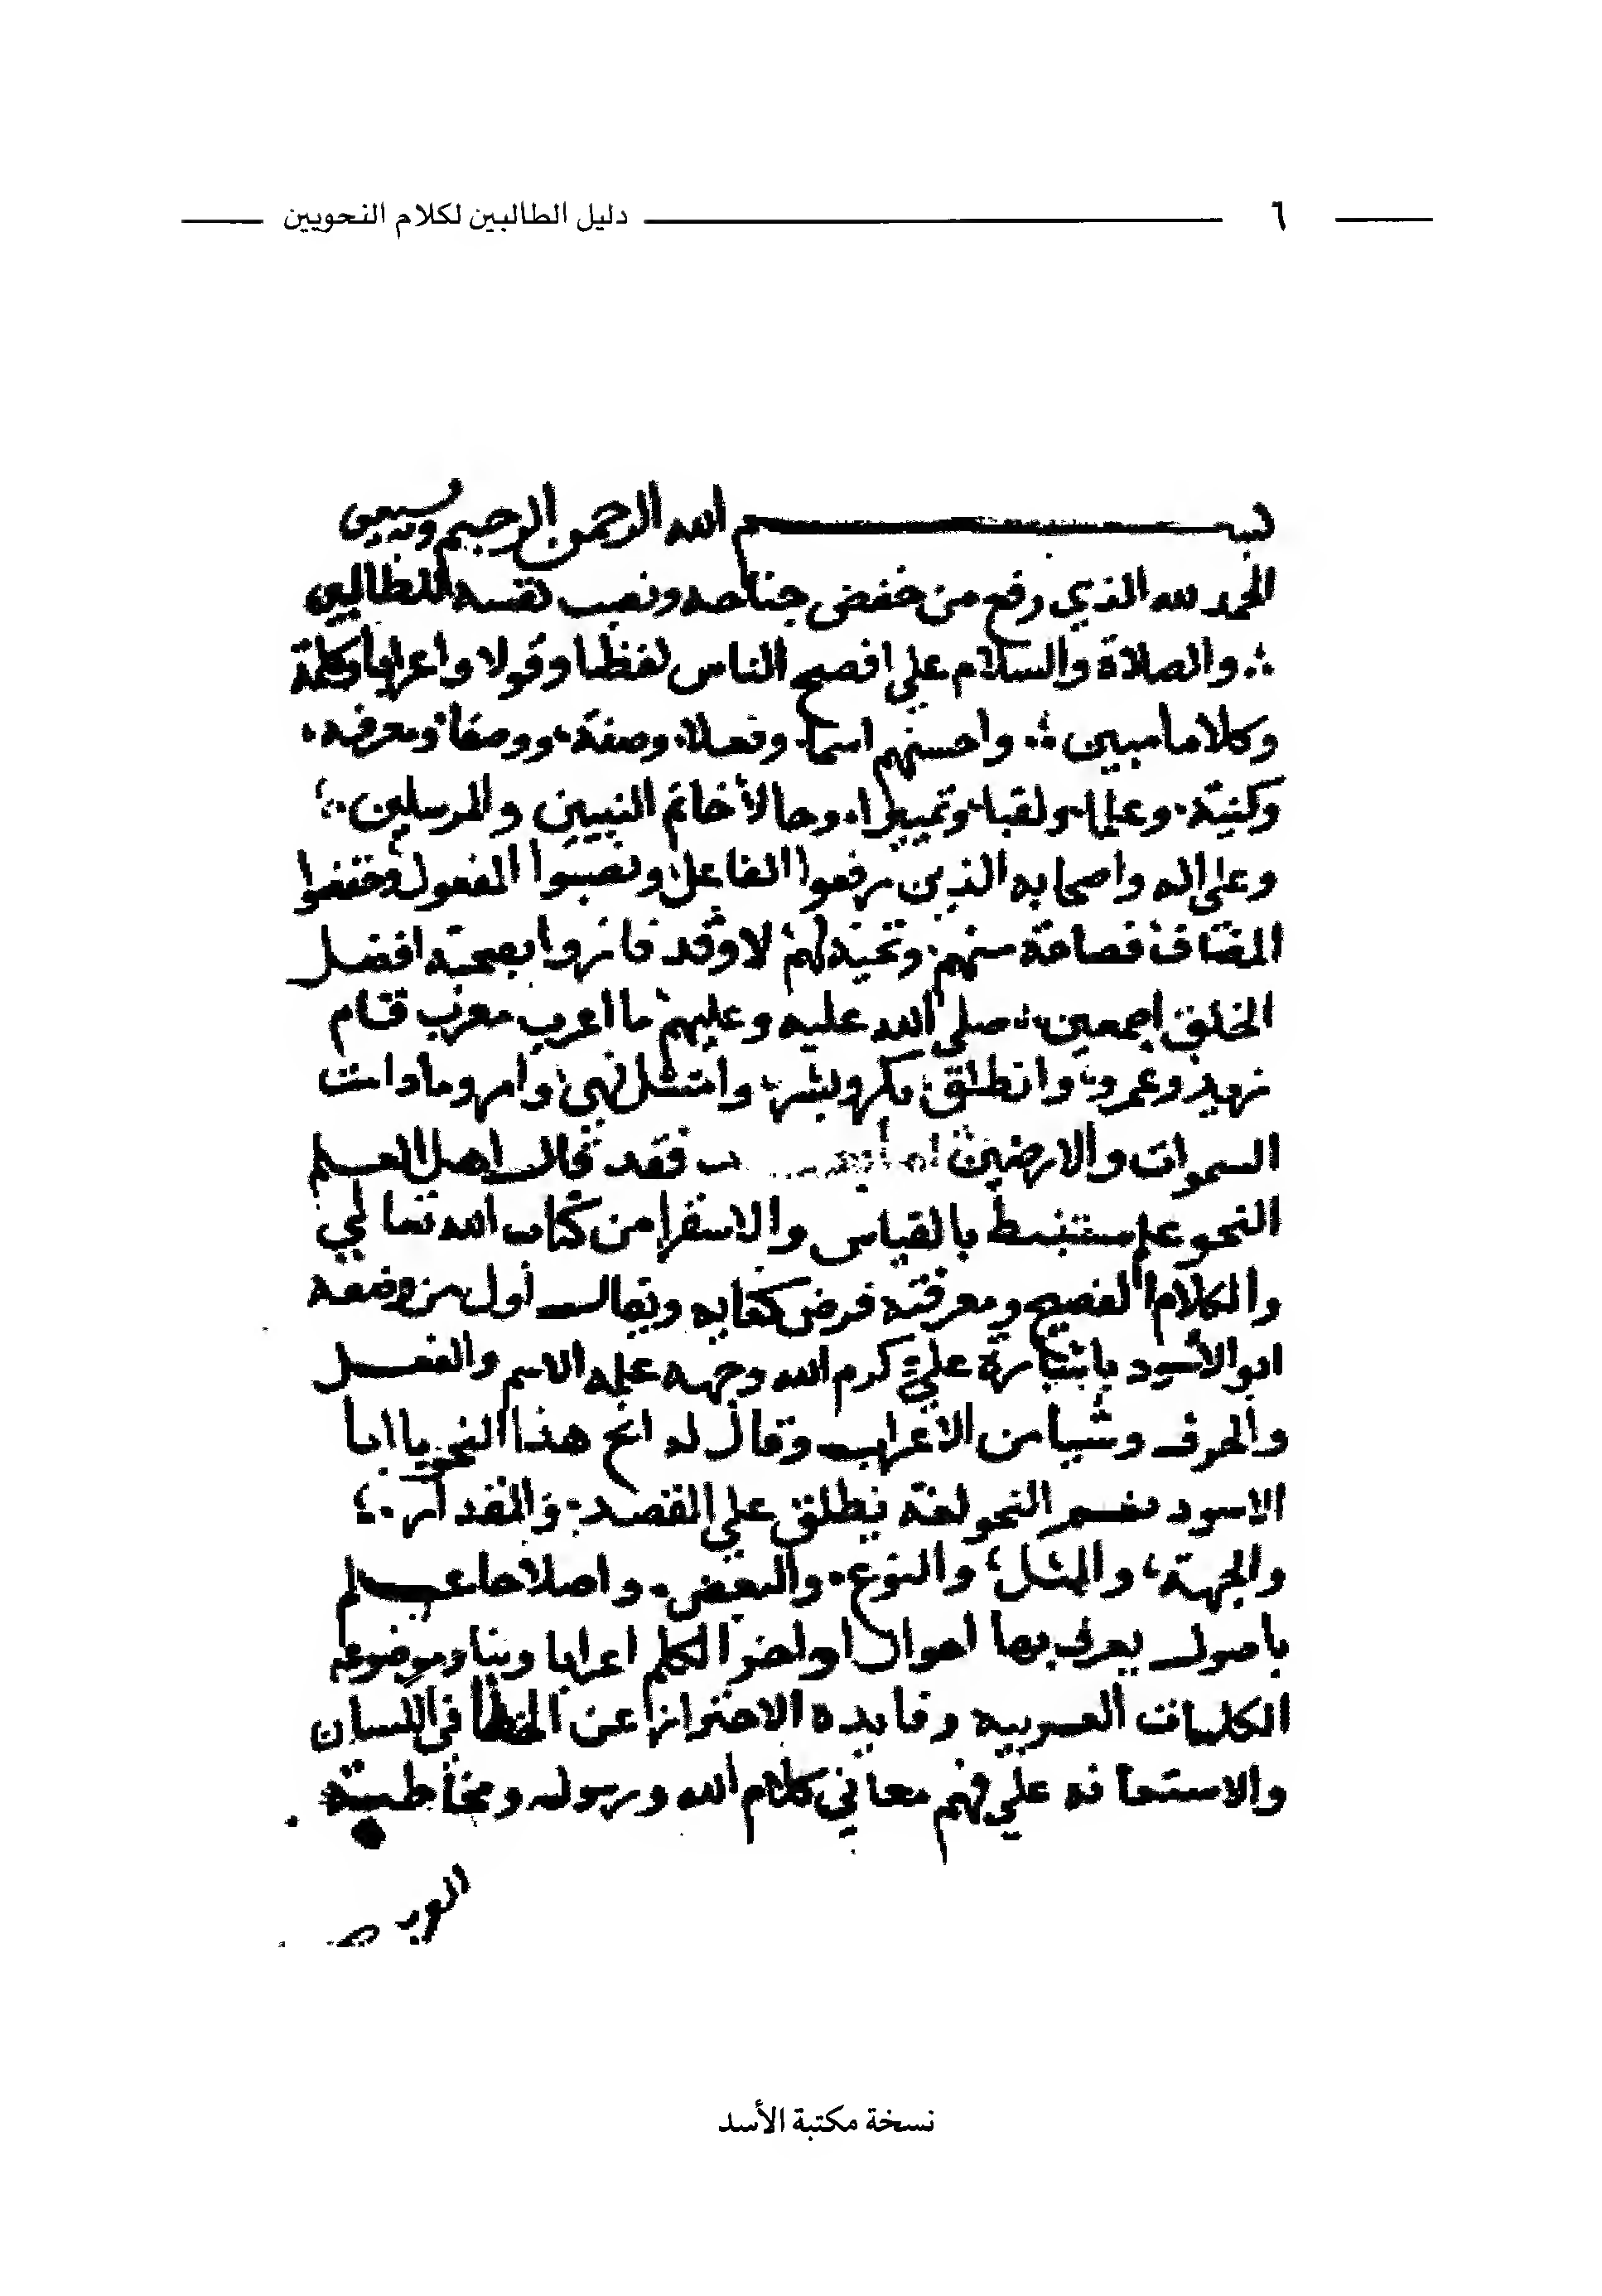 ٦ دليل الطالبين لكلام النحويين
بسم الله الرحمن الرحيم وبه نستعين
الحمد لله الذي رفع من خفض جناحه ونصب نفسه للطالبين
والصلاة والسلام علي افصح الناس لفظا وقولا واعرابا وكلمة
وكلاما مبين واحسنهم اسما وفعلا وصفة ووصفا ومعرفه
وكنية وعلما ولقبا وتمييزا وحالا خاتم النبيين والمرسلين
وعلي اله واصحابه الذين رفعوا الفاعل ونصبوا المفعول وخفضوا
المضاف فصاحة منهم لا وقد فازوا بصحبة افضل
الخلق اجمعين صلي الله عليه وعليهم ما اعرب معرب قام
زيد وعمرو وانطلق بكر وبشر وامتثل نهي وامر وما دامت
السموات والارضين اما بعد فقد قال اهل العلم
النحو علم مستنبط بالقياس والاستقرا من كتاب الله تعالي
والكلام الفصيح ومعرفته فرض كفايه ويقال أول من وضعه
ابو الأسود باشارة علي كرم الله وجهه علمه الاسم والفعل
والحرف وشيا من الأعراب وقال له انح هذا النحو يا ابا
الاسود النحو لغة يطلق علي القصد والمقدار
والجهة والمثل والنوع والبعض واصلاحا علم
باصول يعرف بها احوال اواخر الكلم اعرابا وبنا وموضوعه
الكلمات العربيه وفايده الاحتراز عن الخطأ في اللسان
والاستعانه علي فهم معاني كلام الله ورسوله ومخاطبة
نسخة مكتبة الأسد